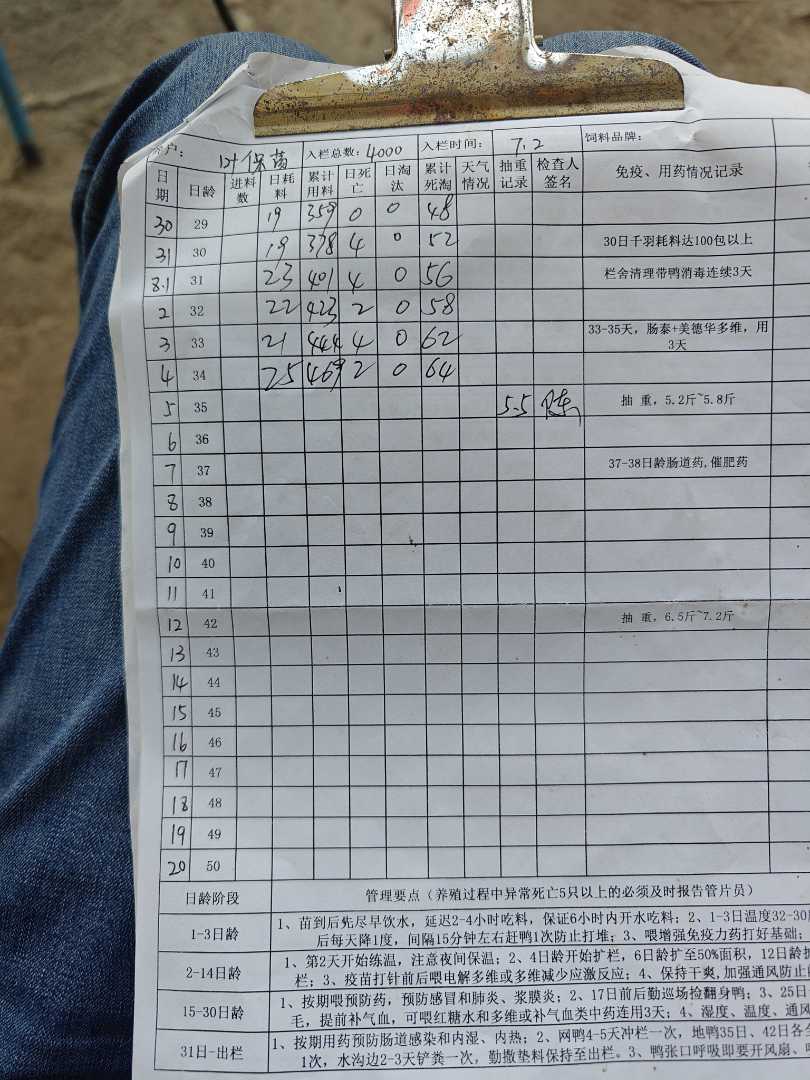 客户： 叶保苗 入栏总数： 4000 入栏时间： 7.2 饲料品牌：
日期 日龄 进料数 日耗料 累计用料 日死亡 日淘汰 累计死淘 天气情况 抽重记录 检查人签名 免疫、用药情况记录
30 29 19 359 0 0 48
31 30 19 378 4 0 52 30日千羽耗料达100包以上
8.1 31 23 401 4 0 56 栏舍清理带鸭消毒连续3天
2 32 22 423 2 0 58
3 33 21 444 4 0 62 33-35天，肠泰+美德华多维，用3天
4 34 25 469 2 0 64
5 35 5.5 抽 重，5.2斤~5.8斤
6 36
7 37 37-38日龄肠道药,催肥药
8 38
9 39
10 40
11 41
12 42 抽 重，6.5斤~7.2斤
13 43
14 44
15 45
16 46
17 47
18 48
19 49
20 50
日龄阶段 管理要点（养殖过程中异常死亡5只以上的必须及时报告管片员）
1-3日龄 1、苗到后先尽早饮水，延迟2-4小时吃料，保证6小时内开水吃料；2、1-3日温度32-30
后每天降1度，间隔15分钟左右赶鸭1次防止打堆；3、喂增强免疫力药打好基础；
2-14日龄 1、第2天开始练温，注意夜间保温；2、4日龄开始扩栏，6日龄扩至50%面积，12日龄扩
栏；3、疫苗打针前后喂电解多维或多维减少应激反应；4、保持干爽,加强通风防止
15-30日龄 1、按期喂预防药，预防感冒和肺炎、浆膜炎；2、17日前后勤巡场捡翻身鸭；3、25日
毛，提前补气血，可喂红糖水和多维或补气血类中药连用3天；4、湿度、温度、通风
31日-出栏 1、按期用药预防肠道感染和内湿、内热；2、网鸭4-5天冲栏一次，地鸭35日、42日各
1次，水沟边2-3天铲粪一次，勤撒垫料保持至出栏。3、鸭张口呼吸即要开风扇、